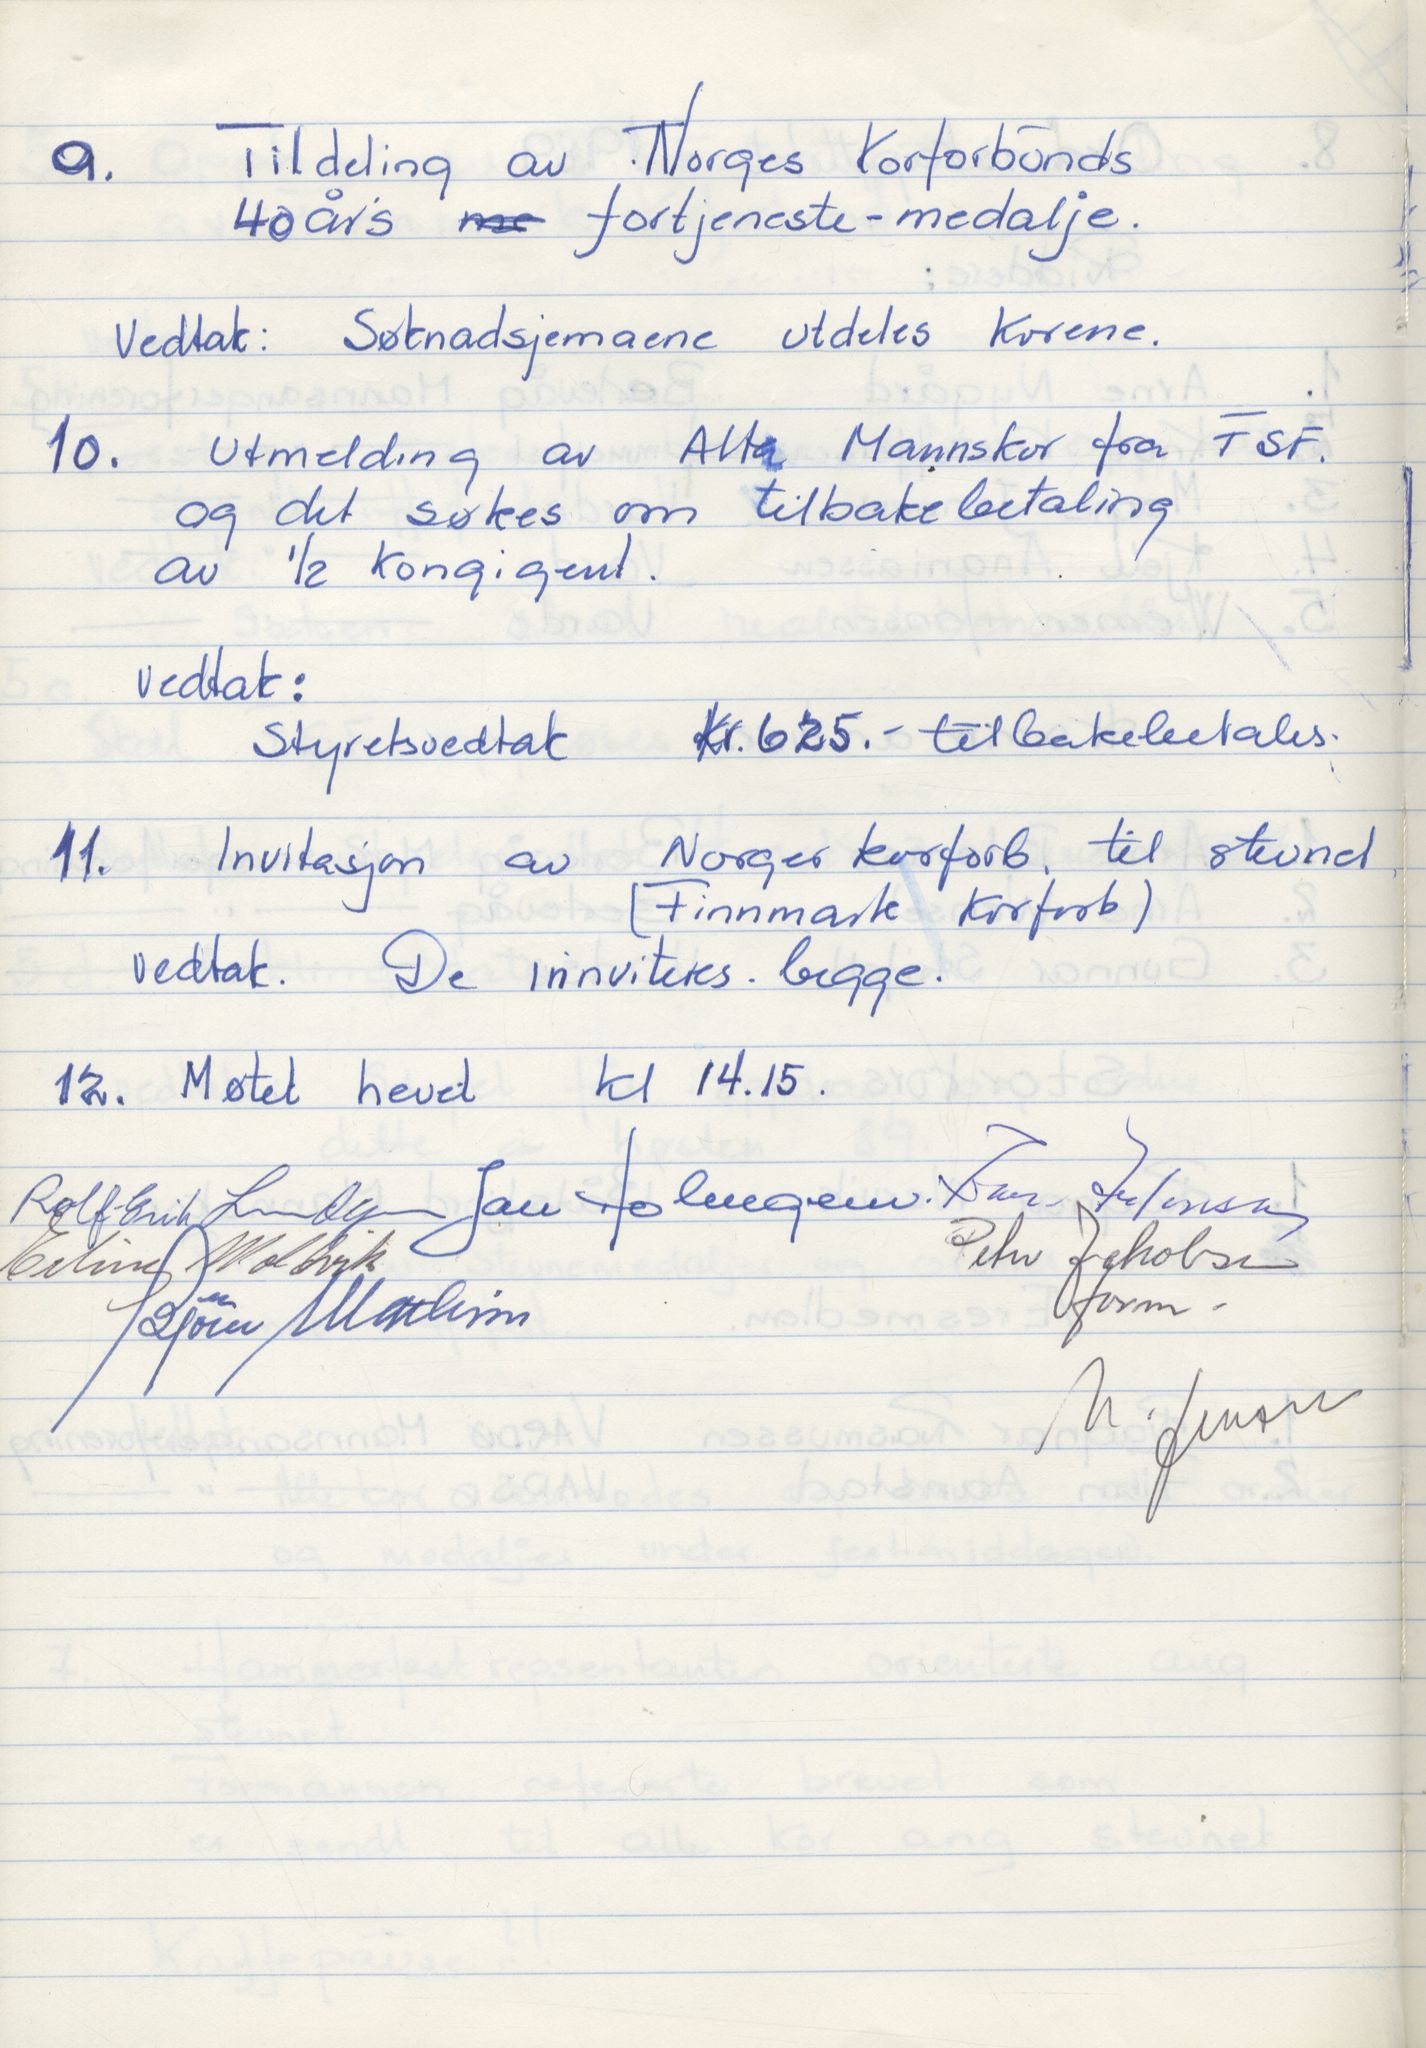 9. Tildeling av Norges Korforbunds
40 års fortjeneste-medalje.
Vedtak: Søknadsjemaene utdeles korene.
10. Utmelding av Alta Mannskor fra TSF.
og det søkes om tilbakebetaling
av 1/2 kongigent.
Vedtak:
Styretsvedtak Kr. 625.- tilbakebetales.
11. Invitasjon av Norges korforb. til stevnet
(Finnmark Korforb)
Vedtak. De innviteres. begge.
12. Møtet hevet kl 14.15.
Rolf-Erik Jan Holmgren.
Peder Jakobsen
form.
Bjørn